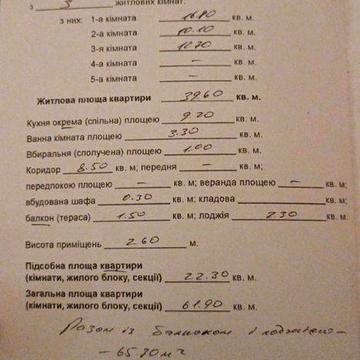 з 3 житлових кімнат:
з них: 1-а кімната 16.80 кв. м.
2-а кімната 10.10 кв. м.
3-я кімната 12.70 кв. м.
4-а кімната – кв. м.
5-а кімната – кв. м.
Житлова площа квартири 39.60 кв. м.
Кухня окрема (спільна) площею 9.20 кв. м.
Ванна кімната площею 3.30 кв. м.
Вбиральня (сполучена) площею 1.00 кв. м.
Коридор 8.50 кв. м; передня – кв. м;
передпокою площею – кв. м; веранда площею – кв. м;
вбудована шафа 0.30 кв. м; кладова кв. м;
балкон (тераса) 1.50 кв. м; лоджія 2.30 кв. м.
Висота приміщень 2.60 м.
Підсобна площа квартири
(кімнати, жилого блоку, секції) 22.30 кв. м.
Загальна площа квартири
(кімнати, жилого блоку, секції) 61.90 кв. м.
Разом із балконом і лоджією –
– 65.70 м²